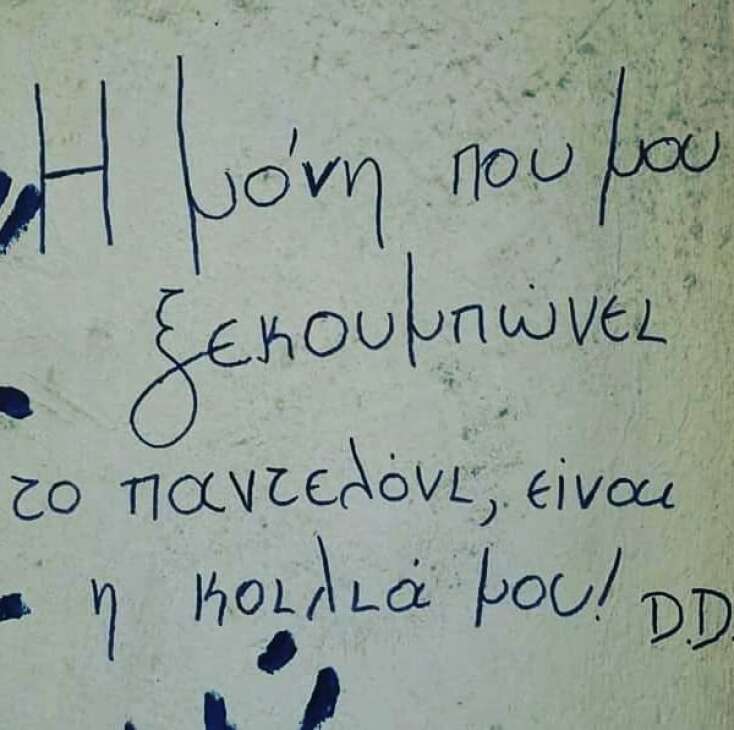 Η μόνη που μου
ξεκουμπώνει
το παντελόνι, είναι
η κοιλιά μου! D.D.